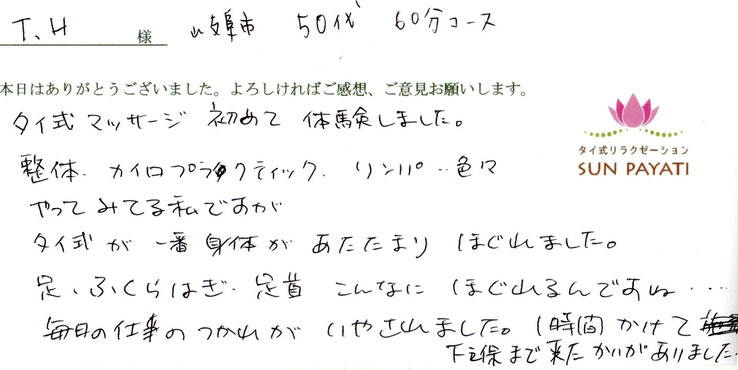 T.H 様 岐阜市 50代 60分コース
本日はありがとうございました。よろしければご感想、ご意見お願いします。
タイ式マッサージ 初めて 体験しました。
タイ式リラクゼーション
SUN PAYATI
整体、カイロプラクティック、リンパ‥色々
やってみてる私ですが
タイ式が 一番 身体が あたたまり ほぐれました。
足・ふくらはぎ・足首 こんなに ほぐれるんですね‥‥
毎日の仕事のつかれが いやされました。1時間かけて
下保まで来たかいがありました。